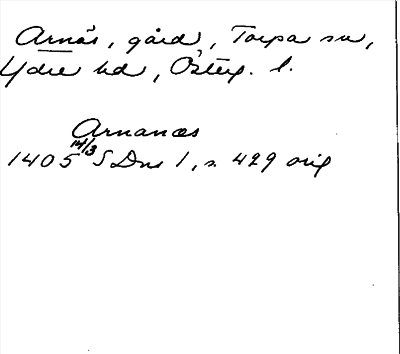 Arnäs, gård, Torpa sn,
Ydre hd, Österg. l.
Arnanæs
1405 14/3 SDns 1, s. 429 orig